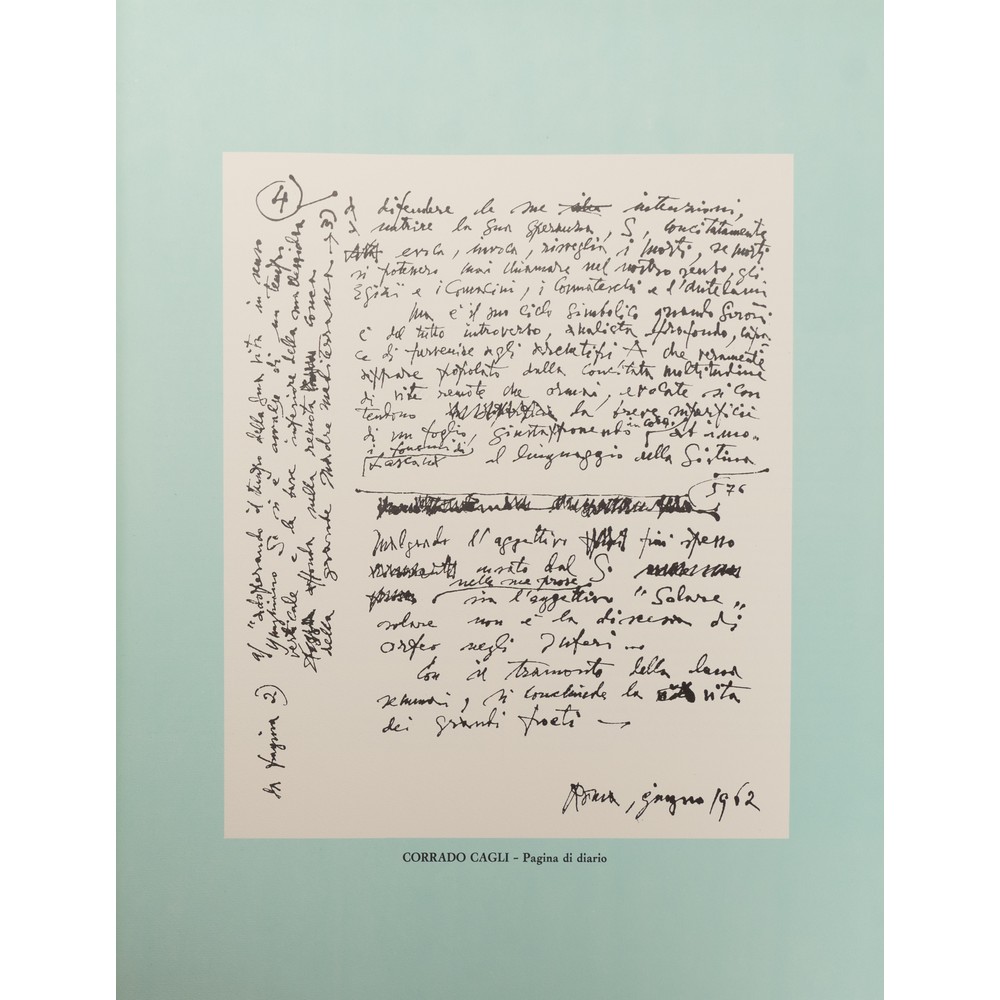 4
difendere le sue intenzioni,
nutrire la sua speranza, S, concitatamente
evoca, invoca, risveglia i morti, se morti
si potevero mai chiamare nel nostro senso, gli
Egizi e i Comacini, i Cosmateschi e l'Antelami
Ma è il suo ciclo simbolico quando Sironi
è del tutto introverso, analista profondo, capa-
ce di pervenire agli archetipi A che veramente
appare popolato dalla concitata moltitudine
di vite remote che ormai, evocate si con
tendono la breve superficie
di un foglio, giustapponendo in cosa
il linguaggio della Sistina
576
Malgrado l'aggettivo più spesso
usato dal S.
nelle sue prose
sia l'aggettivo "Solare"
solare non è la discesa di
Orfeo negli Inferi ...
Con il tramonto della
si conchiude la vita
dei grandi poeti —
Roma, giugno 1962
da pagina 2)
1) "adoperando il tempo della sua vita in senso
verticale e la base inferiore della
affonda nella remota conca
della grande Madre mediterranea → 3)
CORRADO CAGLI – Pagina di diario